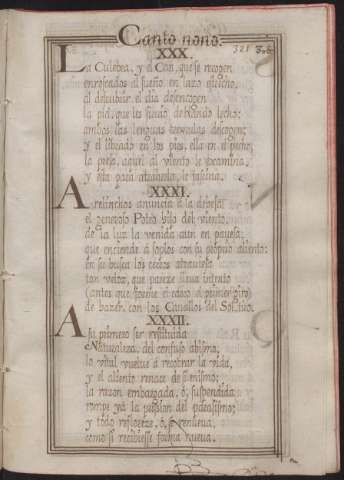 Canto nono.
321
XXX.
La Culebra, y el Can, que se recogen
enroscados al sueño, en lazo estrecho,
al descubrir el dia descogen
la piel, que les sirvió de blando lecho:
ambos las lenguas descogen;
y el librado en los pies, ella en el pecho,
la presa, aquel al viento le
y esta para
XXXI.
A relinchos anuncia à la dehesa
el generoso Potro hijo del viento,
de la luz la venida aun en pavesa,
que enciende à soplos con su proprio aliento:
En su busca los cerros atraviesa
tan veloz, que parece lleva intento
(antes que el primer giro)
de bazer, con los Cavallos del Sol, tiro.
XXXII.
A su primero ser restituida
Naturaleza, del confuso abismo,
lo vital vuelve à recobrar la vida,
y el aliento renace de si mismo;
la razon embargada, ò, suspendida
rompe yà la prission del parasismo;
y todo reflorece, ò, se renueva,
como si recibiesse forma nueva.